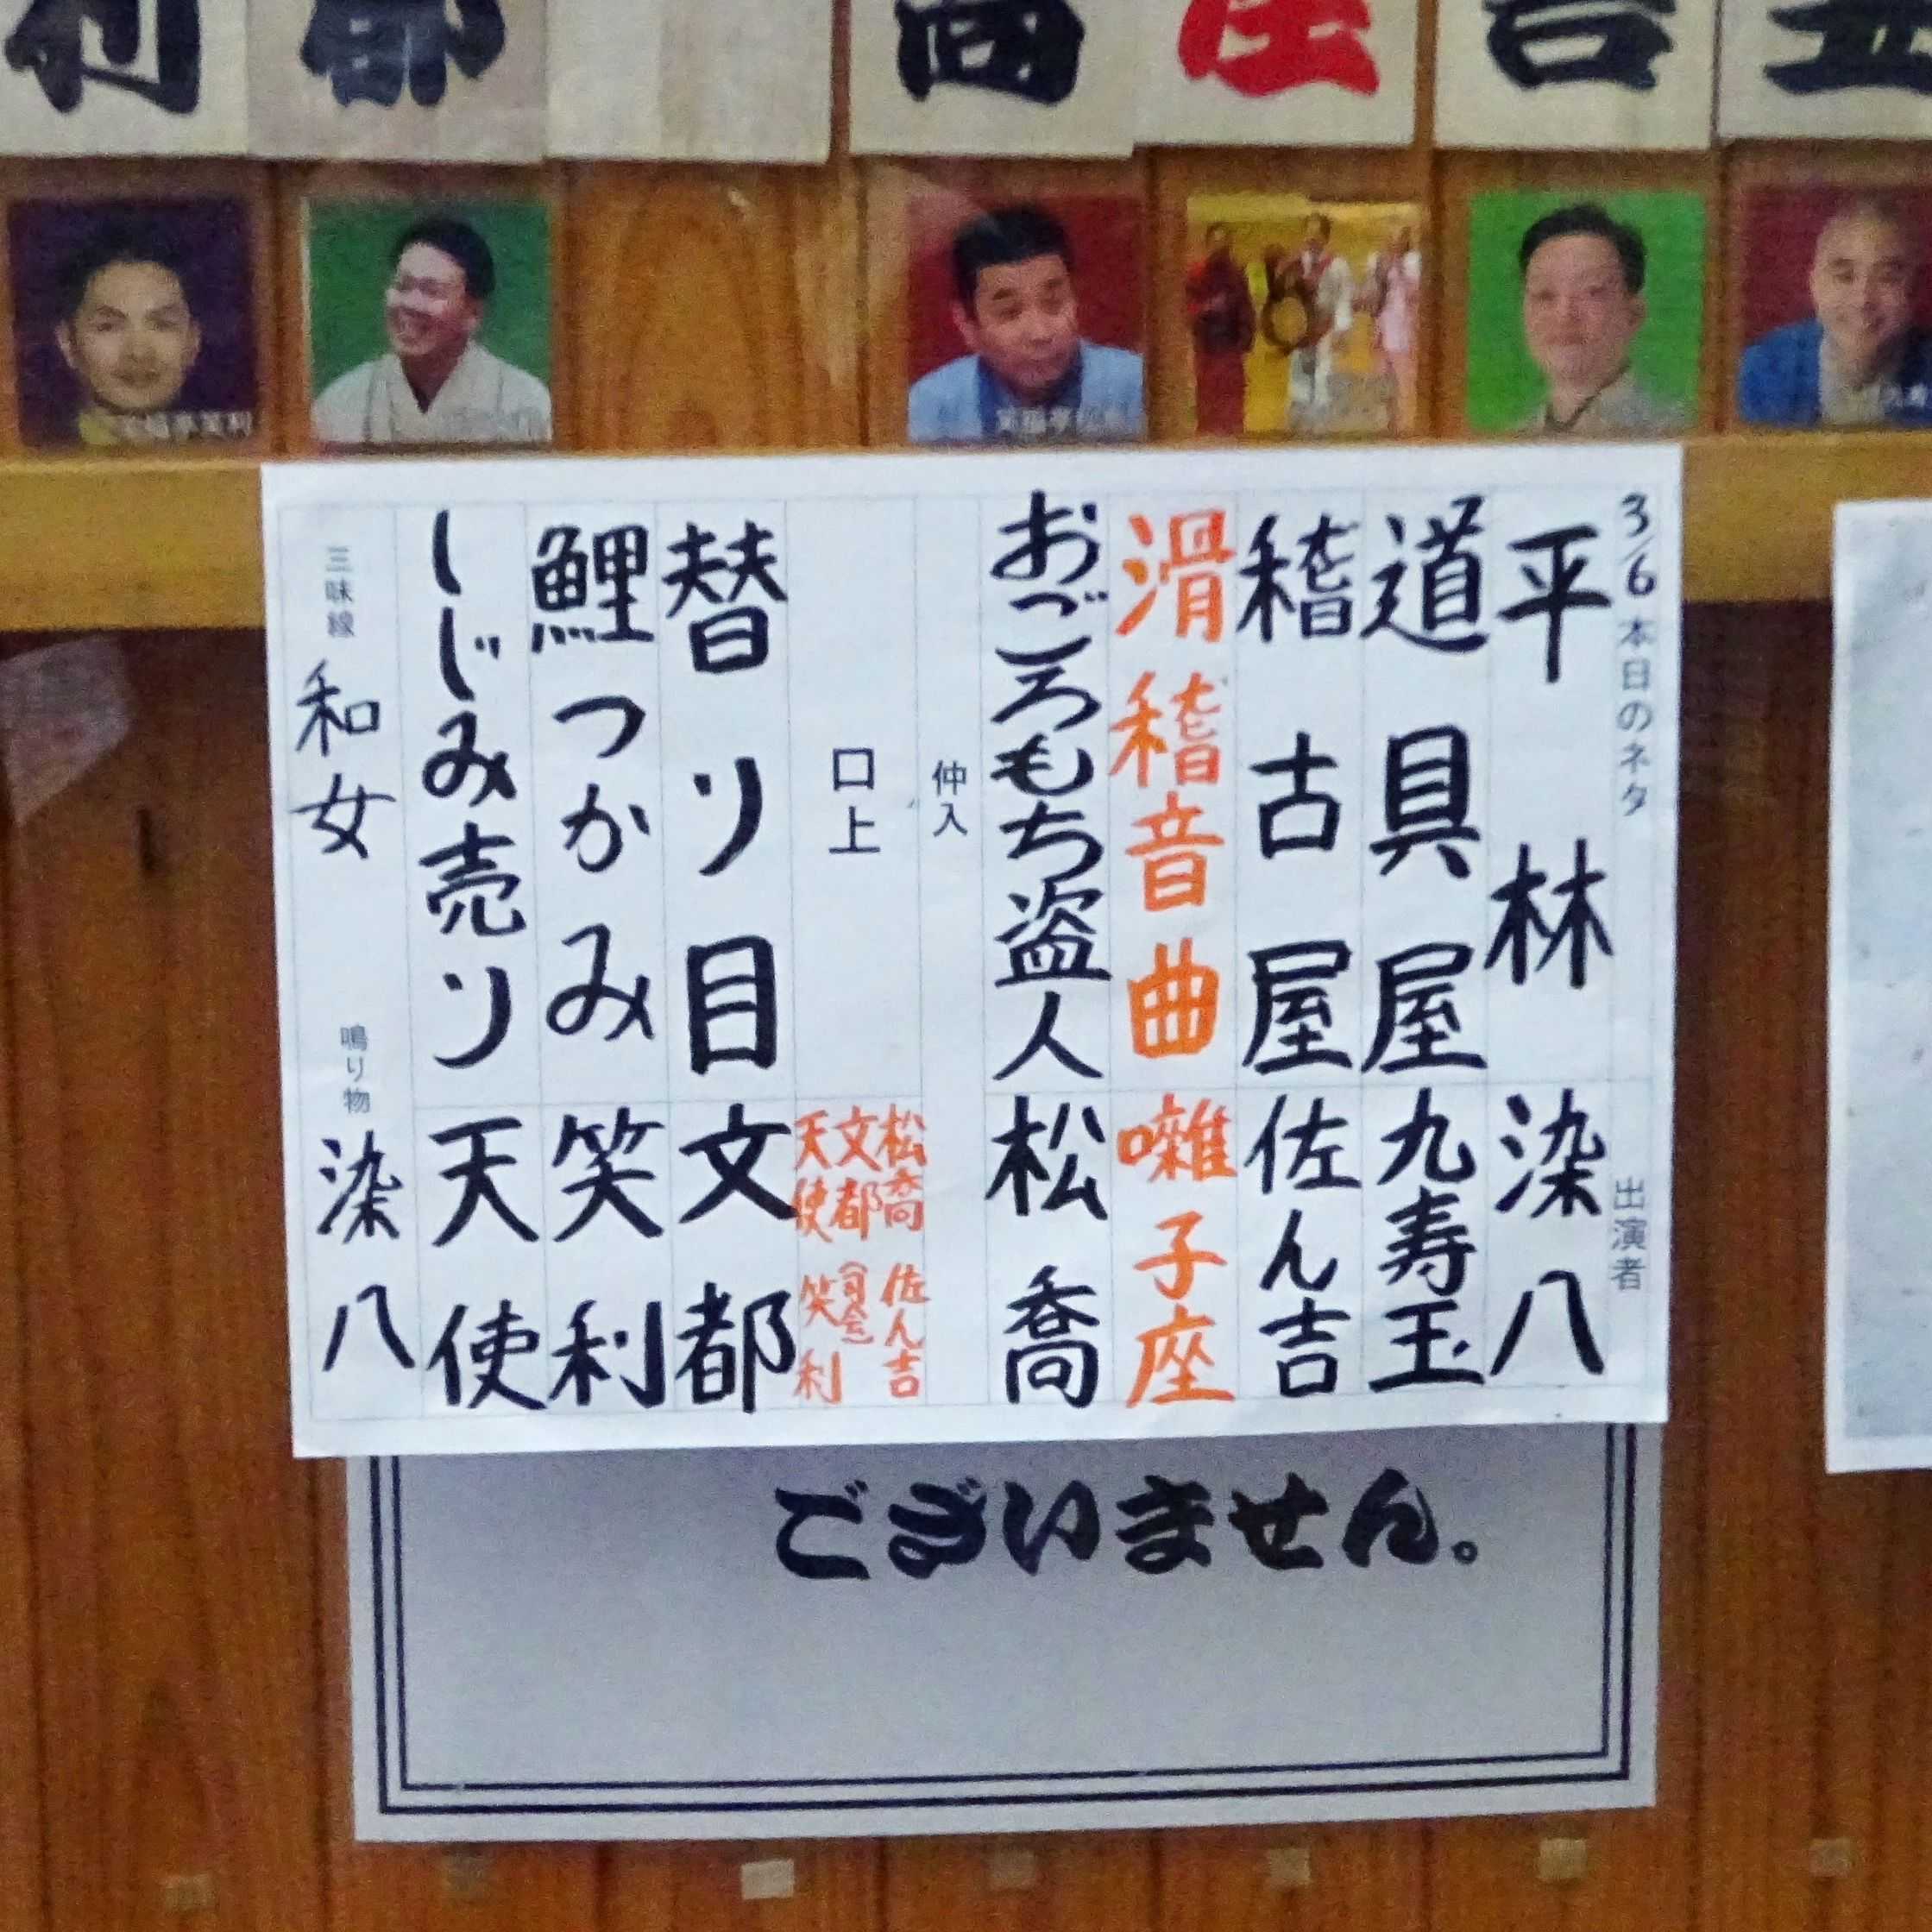 3/6 本日のネタ 出演者
平林 染八
道具屋 九寿玉
稽古屋 佐ん吉
滑稽音曲 囃子座
おごろもち盗人 松喬
仲入
口上 松喬 佐ん吉
文都 (司会)
天使 笑利
替り目 文都
鯉つかみ 笑利
しじみ売り 天使
三味線 和女 鳴り物 染八
ございません。